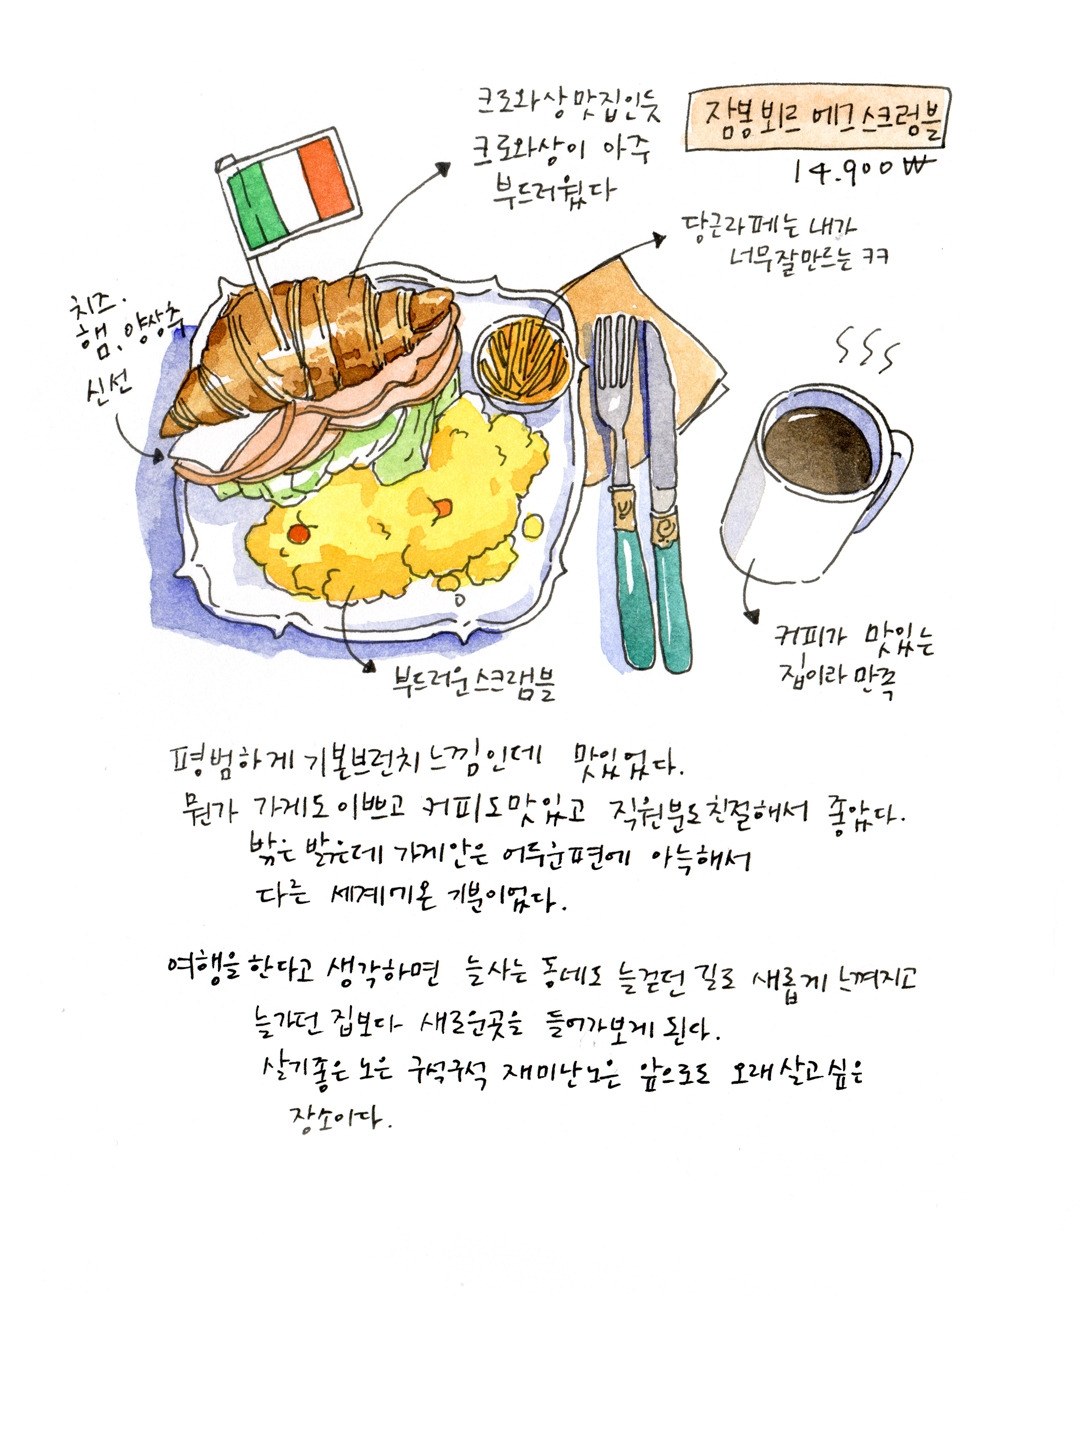 크로와상맛집인듯
크로와상이 아주
부드러웠다
잠봉뵈르 에그스크럼블
14.900₩
당근라페는 내가
너무잘만드는 ㅋㅋ
치즈.
햄, 양상추
신선
커피가 맛있는
집이라 만족
부드러운스크램블
평범하게 기본브런치느낌인데 맛있었다.
뭔가 가게도이쁘고 커피도맛있고 직원분도친절해서 좋았다.
밖은 밝은데 가게안은 어두운편에 아늑해서
다른 세계에온 기분이었다.
여행을한다고 생각하면 늘사는 동네도 늘걷던 길도 새롭게 느껴지고
늘가던 집보다 새로운곳을 들어가보게 된다.
살기좋은 노은 구석구석 재미난노은 앞으로도 오래살고싶은
장소이다.